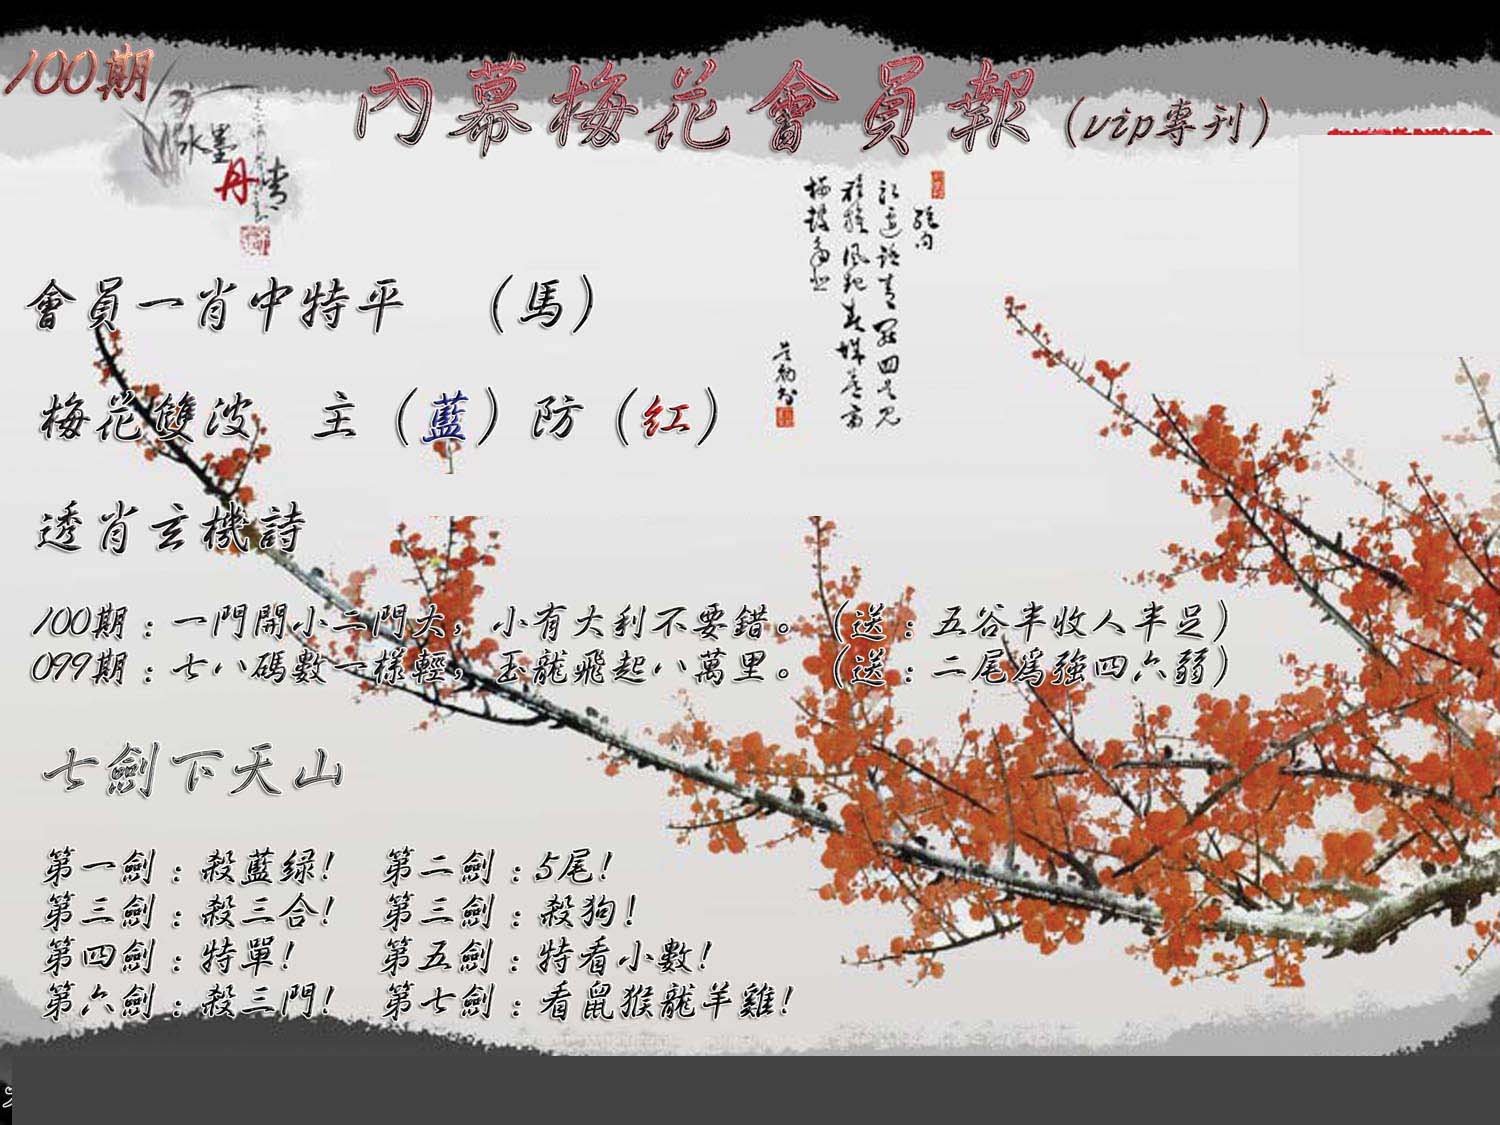 100期
內幕梅花會員報(vip專刊)
水墨
丹青
會員一肖中特平 (馬)
梅花雙波 主(藍)防(紅)
透肖玄機詩
100期:一門開小二門大,小有大利不要錯。(送:五谷丰收人丰足)
099期:七八碼數一樣輕,玉龍飛起八萬里。(送:二尾為強四六弱)
七劍下天山
第一劍:殺藍绿! 第二劍:5尾!
第三劍:殺三合! 第三劍:殺狗!
第四劍:特單! 第五劍:特看小數!
第六劍:殺三門! 第七劍:看鼠猴龍羊雞!